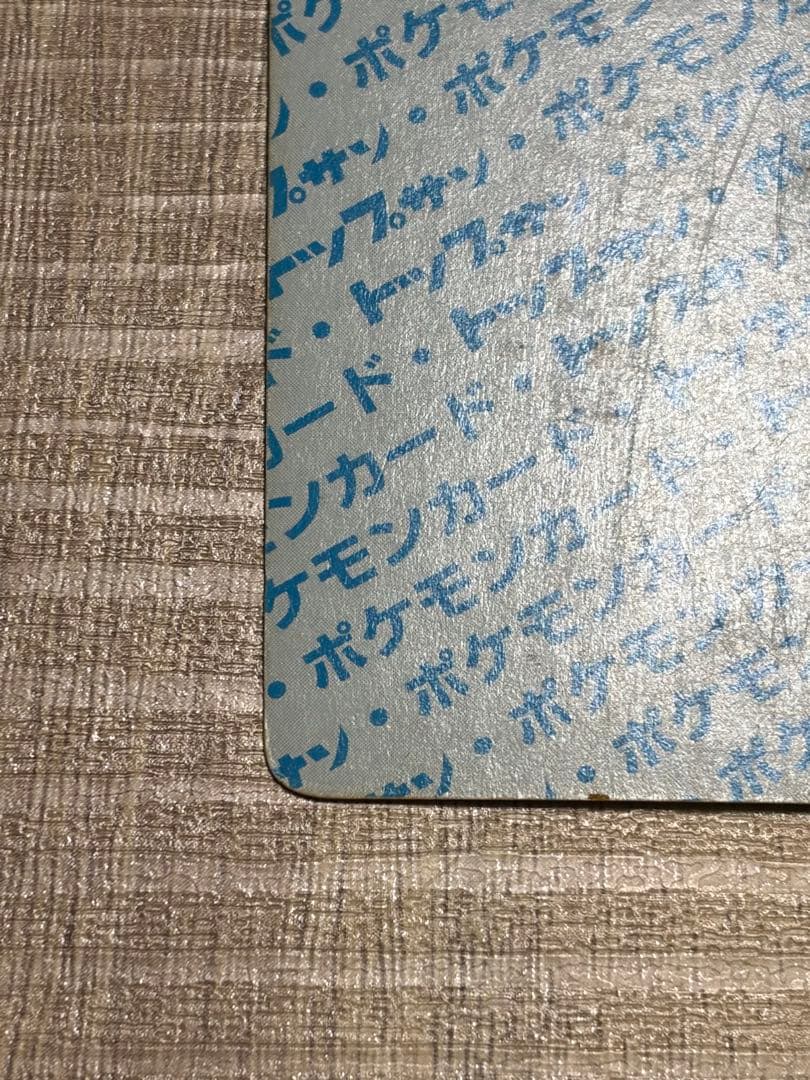 ポケ
ン・ポケモ
プサン・ポケモン
トップサン・ポケモン
ド・トップサン・ポケモ
カード・トップサン・ポ
ンカード・トップサン
ケモンカード・トップ
・ポケモンカード・
サン・ポケモンカード
サン・ポケモンカ
・ポケモ
ポケ